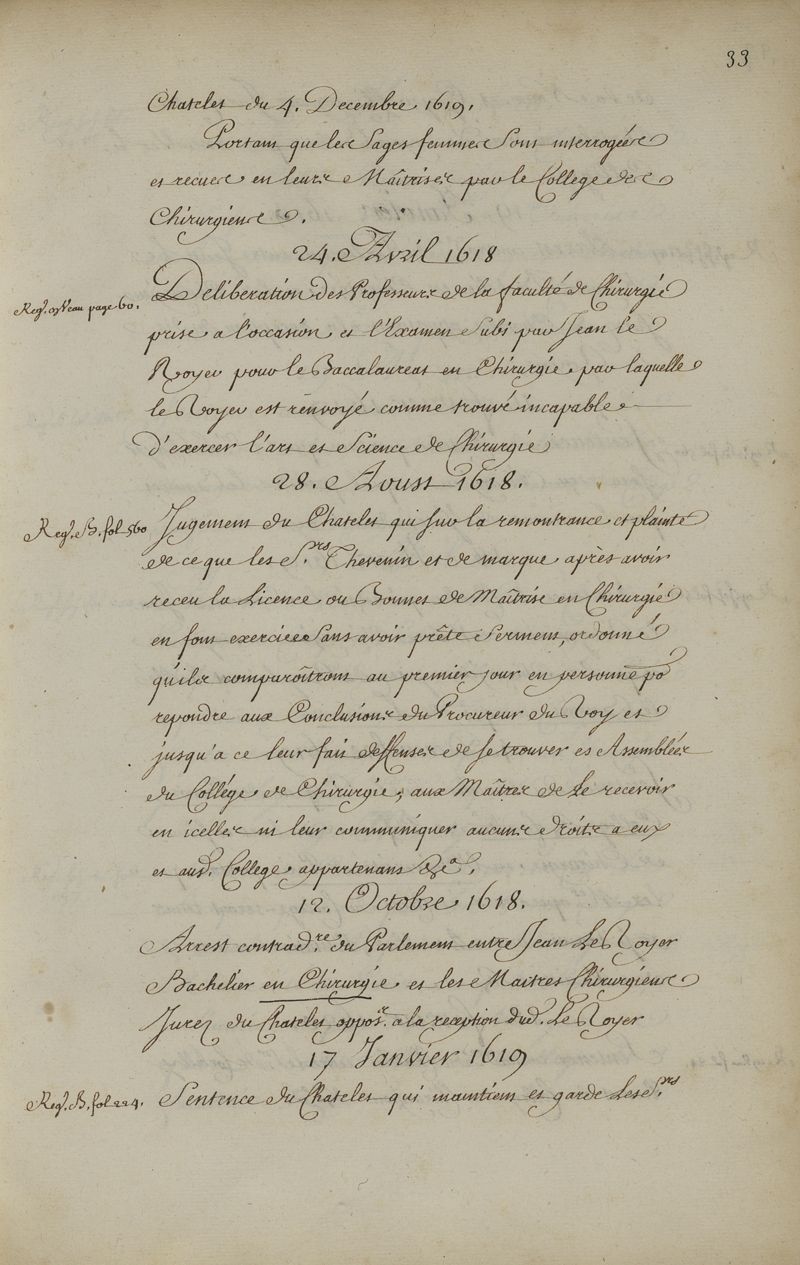 33
Chatelet du 4. Decembre 1619.
Portant que les Sages femmes sont interrogées
et recues en leurs Maîtrises par le College des
Chirurgiens.
24. Avril 1618
Reg. nouveau page 60.
Deliberation des Professeurs de la faculté de Chirurgie
prise a l'occasion et l'Examen Subi par Jean le
Royer pour le Baccalaureat en Chirurgie, par laquelle
le Royer est renvoyé comme trouvé incapable
d'exercer l'art et Science de Chirurgie
28. Aoust 1618.
Reg. B. fol 560
Jugement du Chatelet qui sur la remontrance et plainte
de ce que les S.rs Thevenin et de marque après avoir
receu la Licence ou Bonnet de Maîtrise en Chirurgie
en font exercice Sans avoir prêté Serment, ordonné
qu'ils comparoîtront au premier jour en personne po
repondre aux Conclusions du Procureur du Roy et
jusqu'a ce leur fait deffenses de se trouver es Assemblées
du Collége de Chirurgie, aux Maîtres de Le recevoir
en icelles ni leur communiquer aucuns droits a eux
et aud. College appartenans &ca.
12. Octobre 1618.
Arrest contrad.re du Parlement entre Jean Le Royer
Bachelier en Chirurgie et les Maitres Chirurgiens
Jurez du Chatelet oppos.r a la reception dud. Le Royer
17 Janvier 1619
Reg. B. fol 224.
Sentence du Chatelet qui maintient et garde Les S.rs